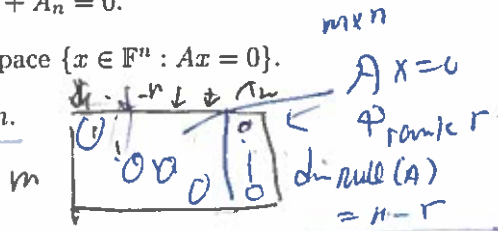 + A_n = 0.
pace {x ∈ 𝔽ⁿ : Ax = 0}.
n.
m×n
Ax=0
rank r
dim null(A)
= n - r
m
0
0 0 0
0
0